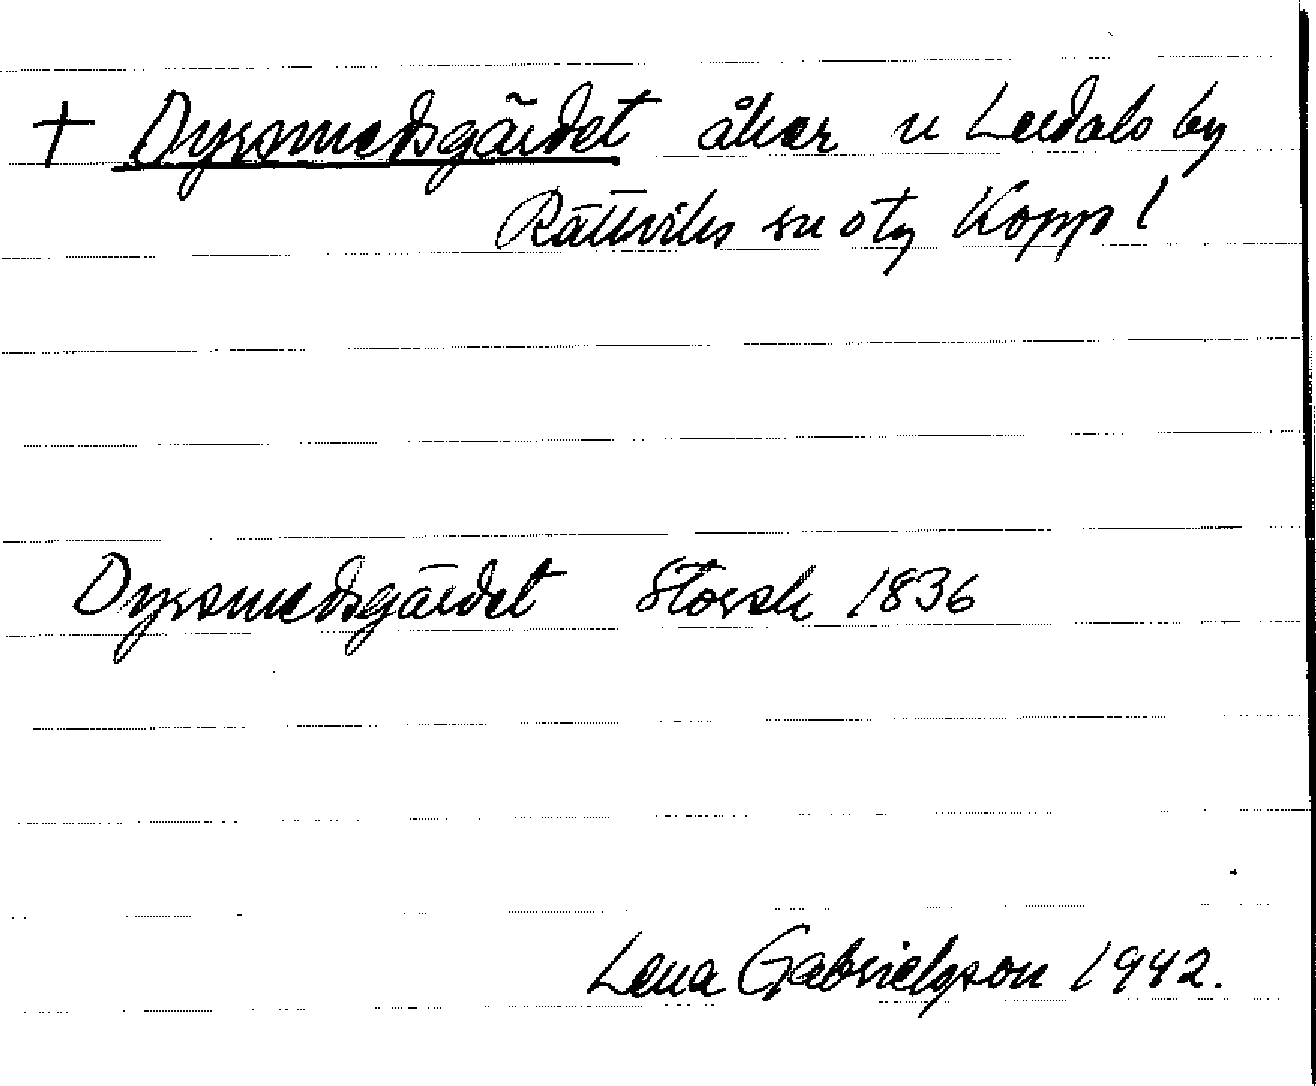 + Dyrsmedsgärdet åker u Leedals by
Rättviks sn o tg Kopp l
Dyrsmedsgärdet Storsk 1836
Lena Gabrielsson 1942.